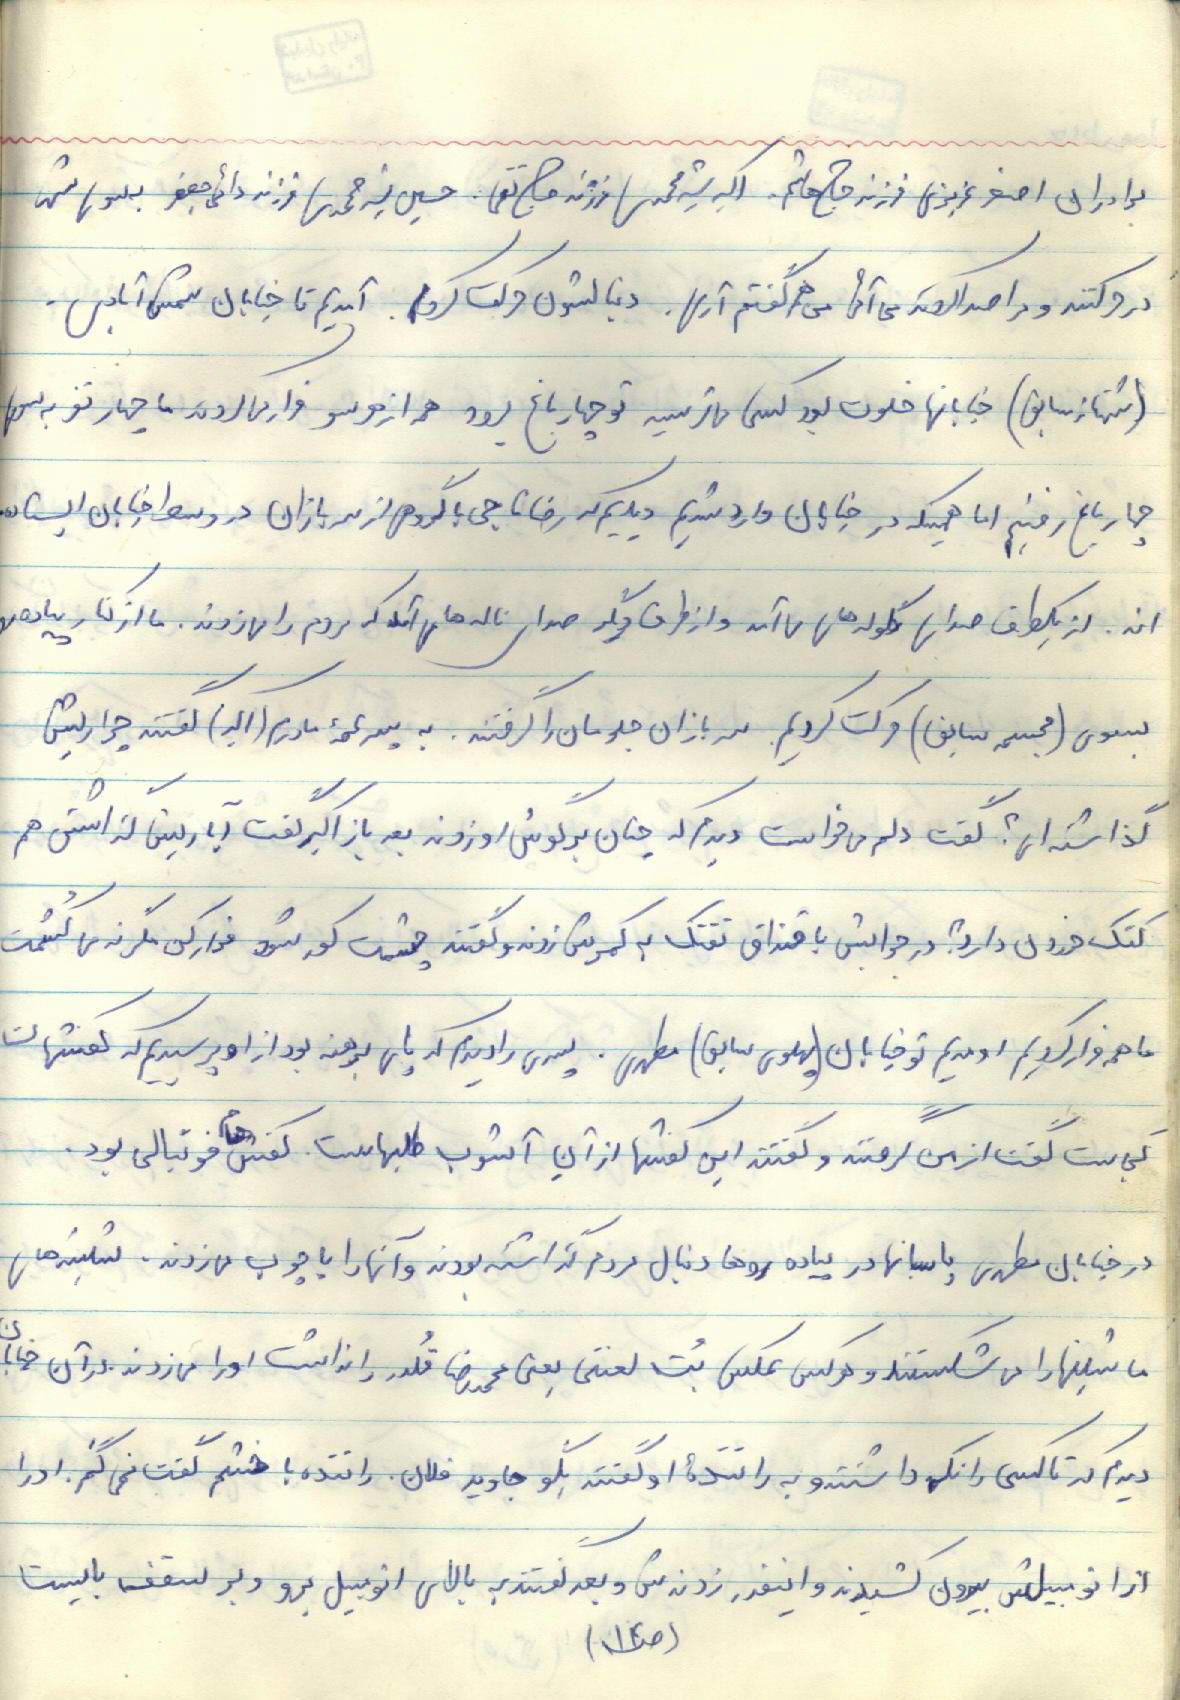 برادران اصغر عزیزی فرزند حاج هاشم. اکبر شیرمحمدی فرزند حاج تقی. حسین شیرمحمدی فرزند دائی جعفر بسوی شهر
در حرکتند و مرا صدا کردند می آئی من هم گفتم آری. دنبالشون حرکت کردم. آمدیم تا خیابان شمس آبادی -
(شهناز سابق) خیابانها خلوت بود کسی می ترسید تو چهار باغ برود همه از هر سو فرار می کردند ما چهار نفر به سوی
چهار باغ رفتیم اما همینکه در خیابان وارد شدیم دیدیم که رضا ناجی با گروهی از سربازان در وسط خیابان ایستاده
اند. از یکطرف صدای گلوله های می آمد و از طرف دیگر صدای ناله های آمد که مردم را می زدند. ما از کنار پیاده رو
بسوی (مجسمه سابق) حرکت کردیم. سربازان جلومان را گرفتند. به پسر عمهٔ مادرم (اکبر) گفتند چرا ریش
گذاشته ای؟ گفت دلم می خواست دیدم که چنان بر گوش او زدند بعد باز اکبر گفت آیا ریش گذاشتن هم
کتک خوردن دارد؟ در جوابش با قنداق تفنگ به کمرش زدند و گفتند چشمت کور شود فرار کن مگرنه می کُشمت
ما همه فرار کردیم اومدیم تو خیابان (پهلوی سابق) مطهری. پسری را دیدم که پای برهنه بود از او پرسیدیم که کفشهات
کجاست گفت از من گرفتند و گفتند این کفشها از آنِ آشوب طلبهاست. کفش ها فوتبالی بود.
در خیابان مطهری پاسبانها در پیاده روها دنبال مردم گذاشته بودند و آنها را با چوب می زدند. شیشه های
ماشینها را می شکستند و هرکس عکس بُت لعنتی یعنی محمدرضا قُلدر را نداشت او را می زدند در آن خیابان
دیدم که تاکسی را نگه داشتند و به رانندهٔ او گفتند بگو جاوید فلان. راننده با خشم گفت نمی گم. او را
از اتومبیلش بیرون کشیدند و اینقدر زدندش و بعد گفتند به بالای اتومبیل برو و بر سقف بایست